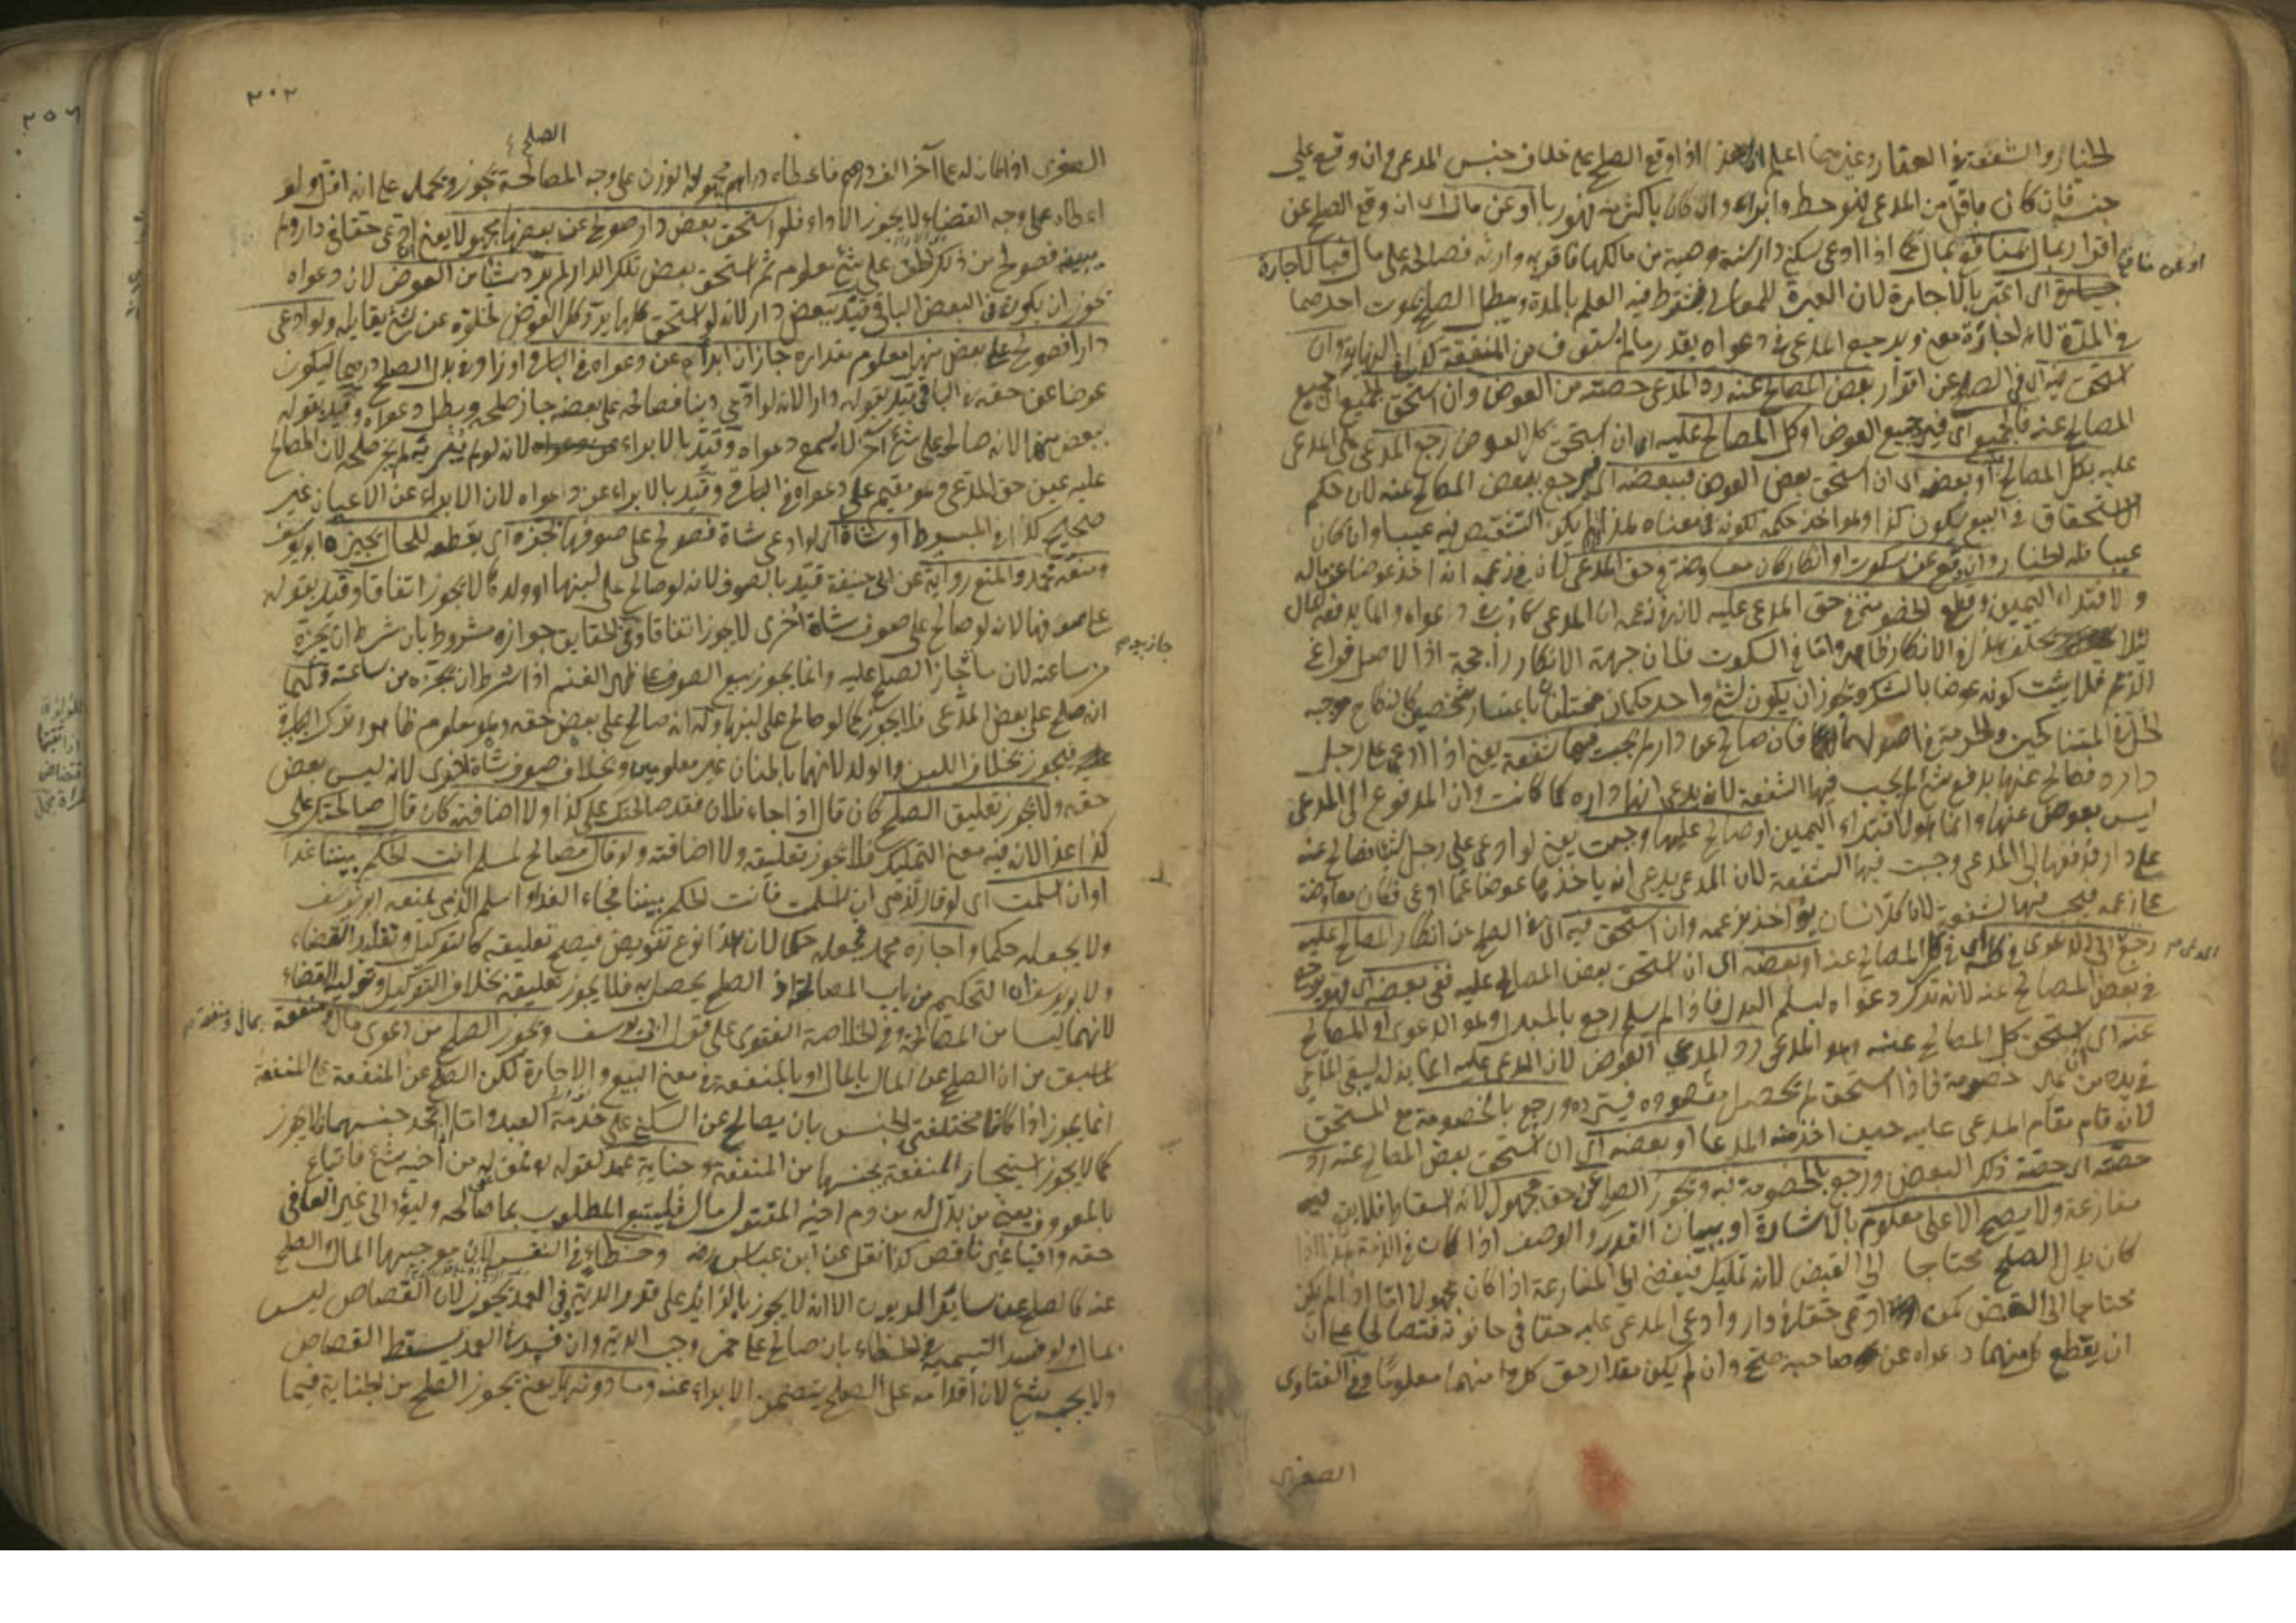 الخيار والشفعة في العقار وغيرهما اعلم ان هذا اذا وقع الصلح على خلاف جنس المدعى وان وقع على
جنسه فان كان باقل من المدعى فهو حط وابراء وان كان باكثر منه فهو ربا او عن مال اي ان وقع الصلح عن
اقرار بمال بمنافع بمال كما اذا ادعى سكنى دار سنة وصية من مالكها فاقر به وارثه فصالحه على مال فباالاجارة
او عن منافع
اي اعتبر بالاجارة لان العبرة للمعاني فيشترط فيه العلم بالمدة ويبطل الصلح بموت احدهما
في المدة لانه اجارة معنى ويرجع المدعي في دعواه بقدر ما لم يستوف من المنفعة كذا في النهاية وان
استحق فيه اي في الصلح عن اقرار بعض المصالح عنه رد المدعي حصته من العوض وان استحق الجميع اي جميع
المصالح عنه فالجميع اي فيرد جميع العوض او كل المصالح عليه اي ان استحق كل العوض رجع المدعي على المدعى
عليه بكل المصالح عنه او بعضه اي ان استحق بعض العوض فببعضه اي يرجع ببعض المصالح عنه لان حكم
الاستحقاق في البيع يكون كذا وهذا اخذ حكمه لكونه في معناه
عيبا فله الخيار وان وقع عن سكوت او انكار كان معاوضة في حق المدعي لان في زعمه انه اخذ عوضا عن ماله
ولافتداء اليمين وقطع الخصومة في حق المدعى عليه لانه في زعمه ان المدعي كاذب في دعواه وانما يدفع المال
لئلا يحلف هذا في الانكار ظاهر واما في السكوت فلان جهة الانكار راجحة اذ الاصل فراغ
الذمم فلا يثبت كونه عوضا بالشك ويجوز ان يكون لشئ واحد حكمان مختلفان باعتبار شخصين كالنكاح موجبه
الحل في المتناكحين والحرمة في اصولهما فان صالح عن دار لم يجب فيها شفعة يعني اذا ادعى على رجل
داره فصالح عنها بدفع شئ لم يجب فيها الشفعة لانه يدعي انها داره كما كانت وان المدفوع الى المدعي
ليس بعوض عنها وانما هو لافتداء اليمين او صالح عليها وجبت يعني لو ادعى على رجل شيئا فصالح عنه
على دار فدفعها الى المدعي وجبت فيها الشفعة لان المدعي يدعي انه ياخذها عوضا عما ادعى فكان معاوضة
على زعمه فيجب فيها الشفعة لان كل انسان يؤاخذ بزعمه وان استحق فيه اي في الصلح عن انكار المصالح عليه
رجع الى الدعوى في كله اي في كل المصالح عنه او بعضه اي ان استحق بعض المصالح عليه ففي بعضه اي فهو يرجع
المدعي
في بعض المصالح عنه لانه ترك دعواه ليسلم البدل فاذا لم يسلم رجع بالمبدل وهو الدعوى او المصالح
عنه اي استحق كل المصالح عنه رد المدعي العوض لان المدعى عليه انما بذله ليبقى المدعى
في يده من غير خصومة فاذا استحق لم يحصل مقصوده فيسترده ورجع بالخصومة مع المستحق
لانه قام مقام المدعى عليه حين اخذ منه المدعى او بعضه اي ان استحق بعض المصالح عنه رد
حصته اي حصة ذلك البعض ورجع بالخصومة فيه ويجوز الصلح عن حق مجهول لانه اسقاط فلا يفضي فيه
منازعة ولا يصح الا على معلوم بالاشارة او ببيان القدر والوصف اذا كان في الذمة هذا اذا
كان بدل الصلح محتاجا الى القبض لانه تمليك فيفضي الى المنازعة اذا كان مجهولا اما اذا لم يكن
محتاجا الى القبض كمن ادعى حقا في دار وادعى المدعى عليه حقا في حانوته فتصالحا على ان
ان يقطع كل منهما دعواه عن صاحبه صح وان لم يكن مقدار حق كل منهما معلوما وفي الفتاوى
الصغرى
٣٠٢
الصلح
الصغرى اذا كان له على آخر الف درهم فاعطاه دراهم مجهولة الوزن على وجه المصالحة يجوز ويحمل على انه اقل ولو
اعطاه على وجه القضاء لا يجوز الاداء فلو استحق بعض دار صولح عن بعضها مجهولا يعني ادعى حقا في دار ولم
يبينه فصولح من ذلك الحق على شئ معلوم ثم استحق بعض تلك الدار لم يرد شيئا من العوض لان دعواه
يجوز ان يكون في البعض الباقي قيد ببعض دار لانه لو استحق كلها يرد كل العوض لخلوه عن شئ يقابله ولو ادعى
دارا فصولح على بعض منها معلوم مقداره جاز ان ابرأه عن دعواه في الباقي او زاد في بدل الصلح درهما ليكون
عوضا عن حقه في الباقي قيد بقوله دارا لانه لو ادعى دينا فصالحه على بعضه جاز صلحه وبطل دعواه وقيد بقوله
بعض منها لانه صالح على شئ آخر لا يسمع دعواه وقيد بالابراء لانه لو لم يبرئه لم يجز صلحه لان المصالح
عليه عين حق المدعي وهو مقيم على دعواه في الباقي وقيد بالابراء عن دعواه لان الابراء عن الاعيان غير
صحيح كذا في المبسوط او شاة اي لو ادعى شاة فصولح على صوفها بجزه اي بقطعه للحال يجيزه ابو يوسف
ومنعه محمد والمنع رواية عن ابي حنيفة قيد بالصوف لانه لو صالح على لبنها او ولدها لا يجوز اتفاقا وقيد بقوله
على صوفها لانه لو صالح على صوف شاة اخرى لا يجوز اتفاقا وفي الحقايق جوازه مشروط بان شرط ان يجزه
من ساعته لان ما جاز الصلح عليه وانما يجوز بيع الصوف على ظهر الغنم اذا شرط ان يجزه من ساعته ولهما
جاز بيعه
انه صلح على بعض المدعى فلا يجوز كما لو صالح على لبنها وله انه صالح على بعض حقه وهو معلوم ظاهرا وترك الباقي
فيجوز بخلاف اللبن والولد لانهما بالمنان غير معلومين وبخلاف صوف شاة اخرى لانه ليس بعض
حقه ولا يجوز تعليق الصلح كان قال اذا جاء فلان فقد صالحتك على كذا ولا اضافته كان قال صالحتك على
كذا غدا لان فيه معنى التمليك فلا يجوز تعليقه ولا اضافته ولو قال مصالح لمسلم انت الحكم بيننا غدا
او ان اسلمت اي لو قال لذمي ان اسلمت فانت الحكم بيننا فجاء الغد او اسلم الذمي يمنعه ابو يوسف
ولا يجعله حكما واجازه محمد فجعله حكما لان هذا نوع تفويض فيصح تعليقه كالتوكيل وتقليد القضاء
ولابي يوسف ان التحكيم من باب المصالحة اذ الصلح يحصل به فلا يجوز تعليقه بخلاف التوكيل وتولية القضاء
لانهما ليسا من المصالحة وفي الخلاصة الفتوى على قول ابي يوسف ويجوز الصلح من دعوى مال ومنفعة
بمال ومنفعة
لما سبق من ان الصلح عن المال بالمال او بالمنفعة في معنى البيع والاجارة لكن الصلح عن المنفعة على المنفعة
انما يجوز اذا كانا مختلفتي الجنس بان يصالح عن السكنى على خدمة العبد واما اذا اتحد جنسهما فلا يجوز
كما لا يجوز استيجار المنفعة بجنسها من المنفعة وجناية عمد لقوله فمن عفي له من اخيه شئ فاتباع
بالمعروف يعني من بذل له من دم اخيه المقتول مال فليتبع المطلوب بما صالحه وليؤد الى غير العافي
حقه وافيا غير ناقص كذا نقل عن ابن عباس رضه وخطاء في النفس لان موجبها المال والصلح
عنه كالصلح عن سائر الديون الا انه لا يجوز بالزائد على قدر الدية وفي العمد يجوز لان القصاص ليس
بمال ولو فسد التسمية في الخطاء بان صالح على خمر وجب الدية وان فسدت العمد يسقط القصاص
ولا يجب شئ لان اقدامه على الصلح يتضمن الابراء عنه وما دونها يعني يجوز الصلح من الجناية فيما
٢٥٦